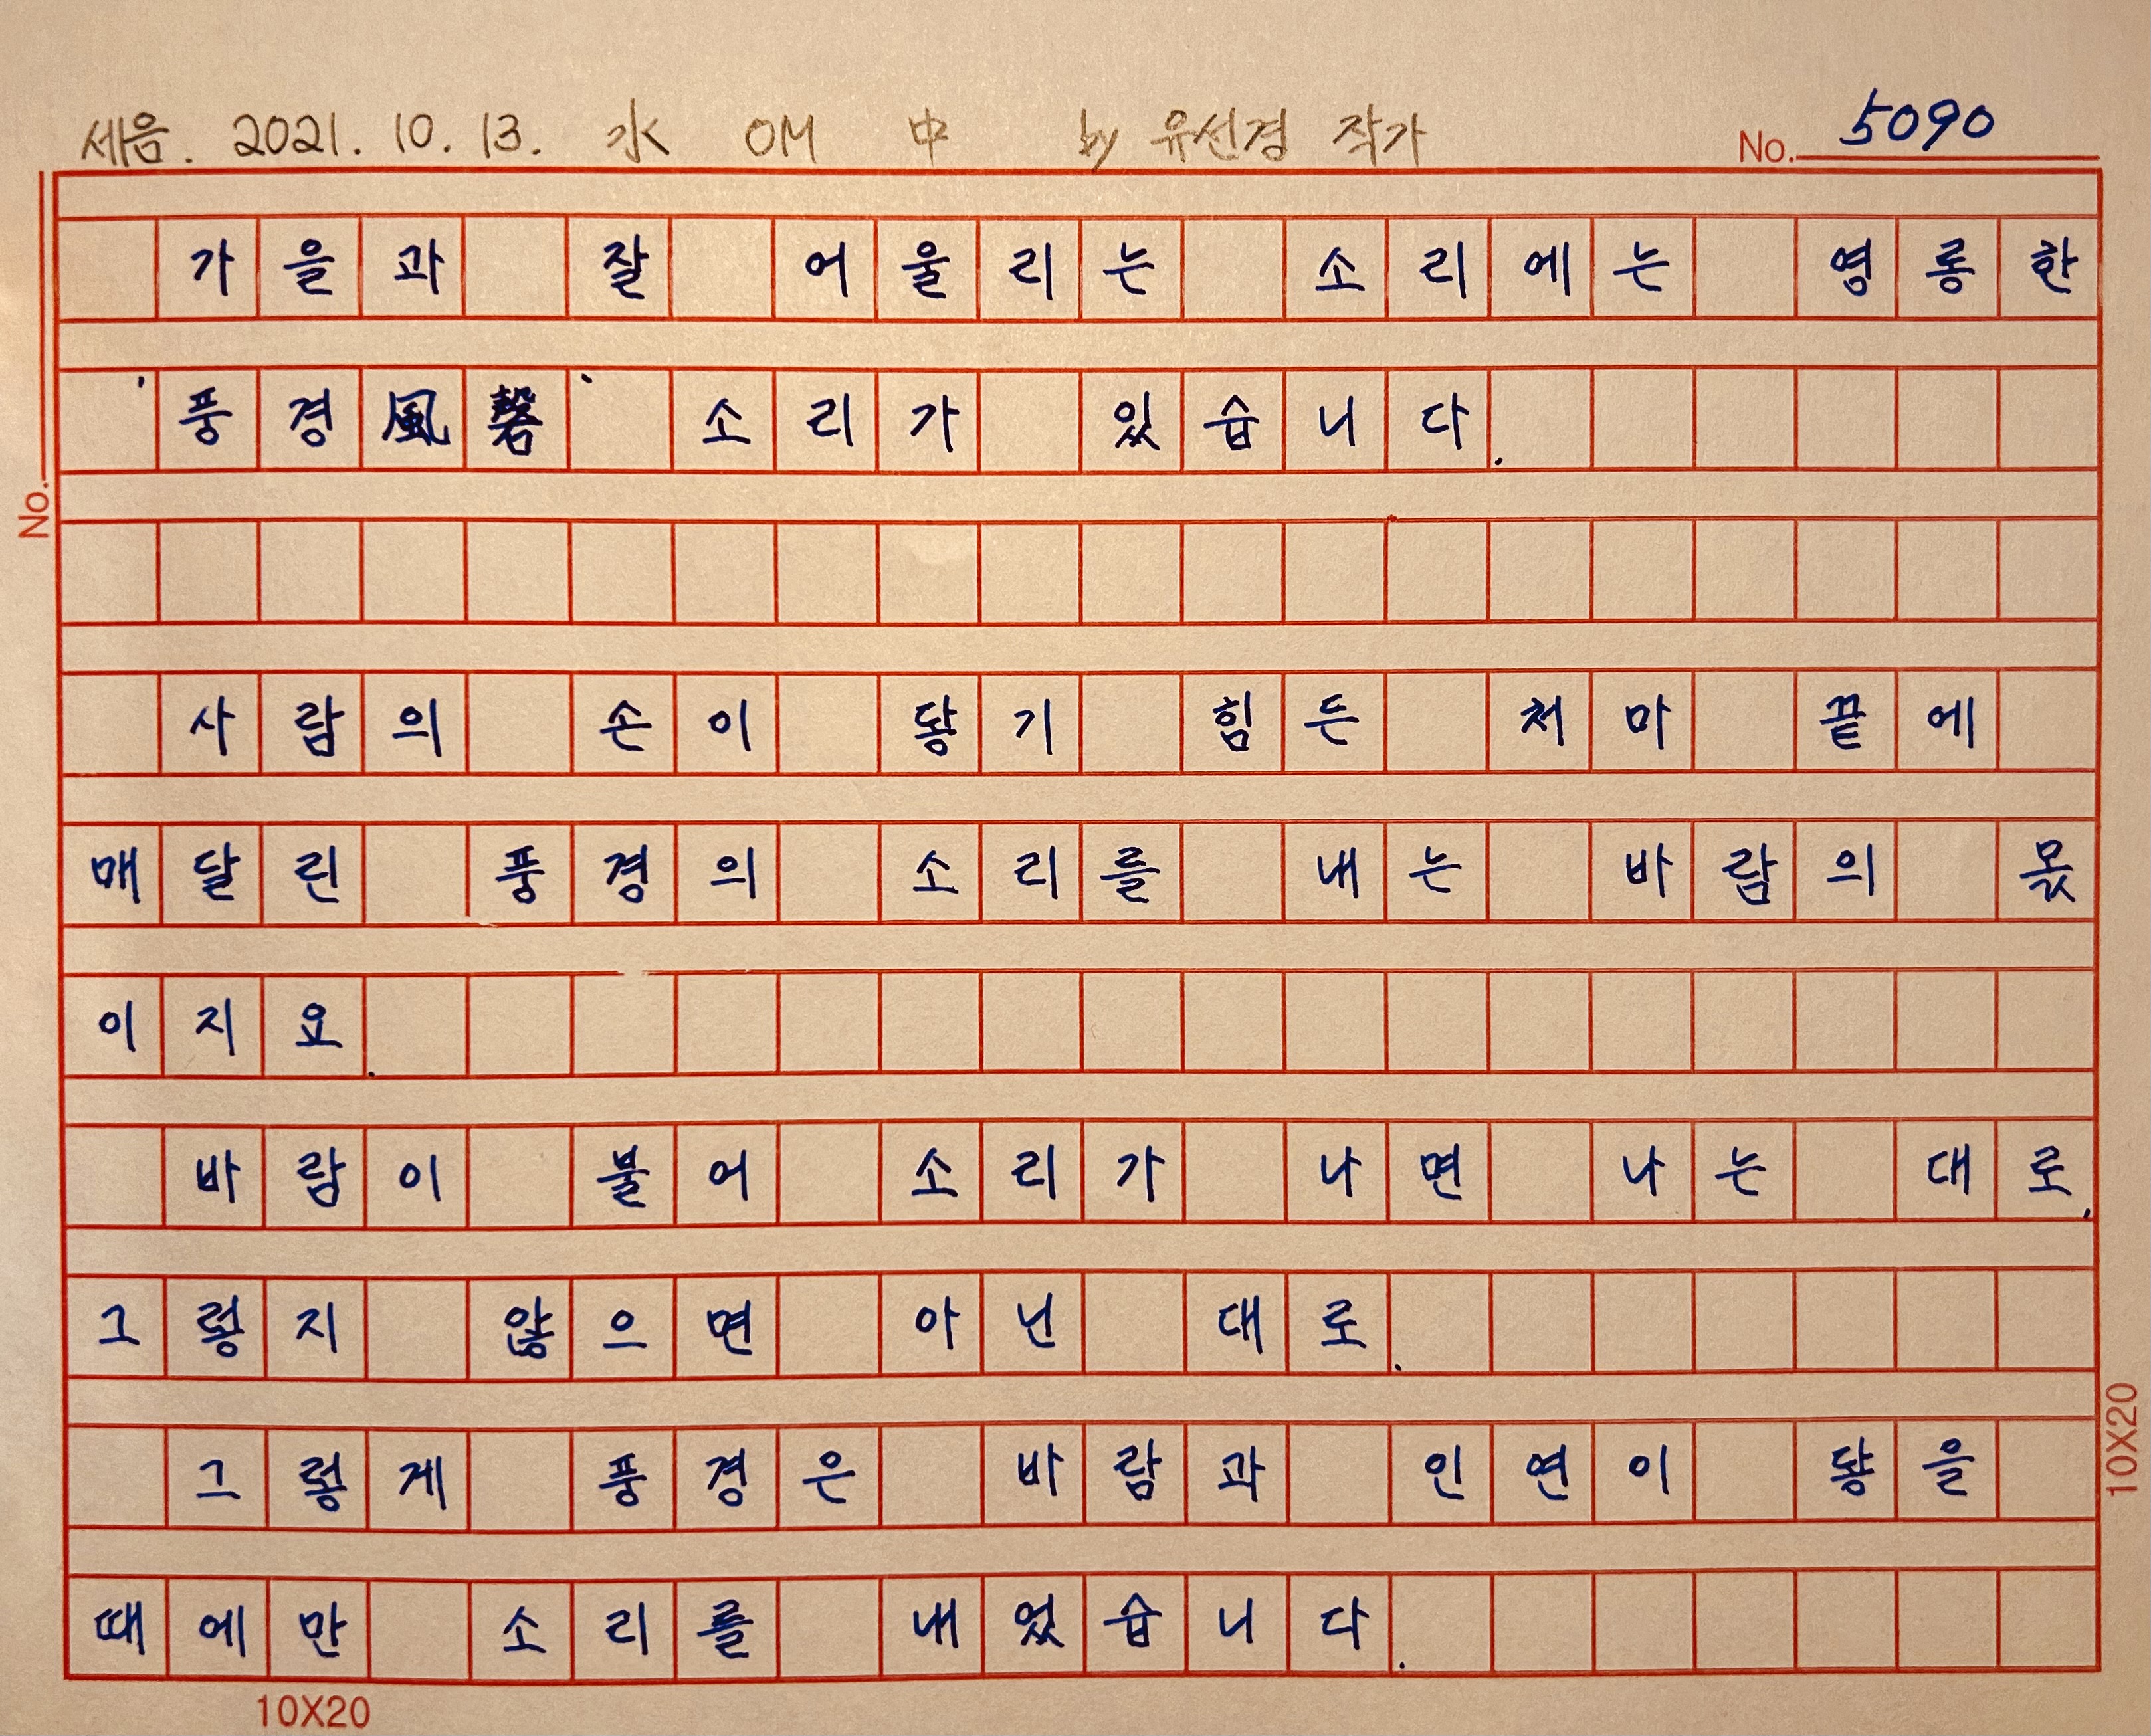 세음. 2021. 10. 13. 水 OM 中 by 유선경 작가
No. 5090
가을과 잘 어울리는 소리에는 영롱한
'풍경風磬' 소리가 있습니다.
No.
사람의 손이 닿기 힘든 처마 끝에
매달린 풍경의 소리를 내는 바람의 몫
이지요.
바람이 불어 소리가 나면 나는 대로,
그렇지 않으면 아닌 대로.
그렇게 풍경은 바람과 인연이 닿을
때에만 소리를 내었습니다.
10X20
10X20